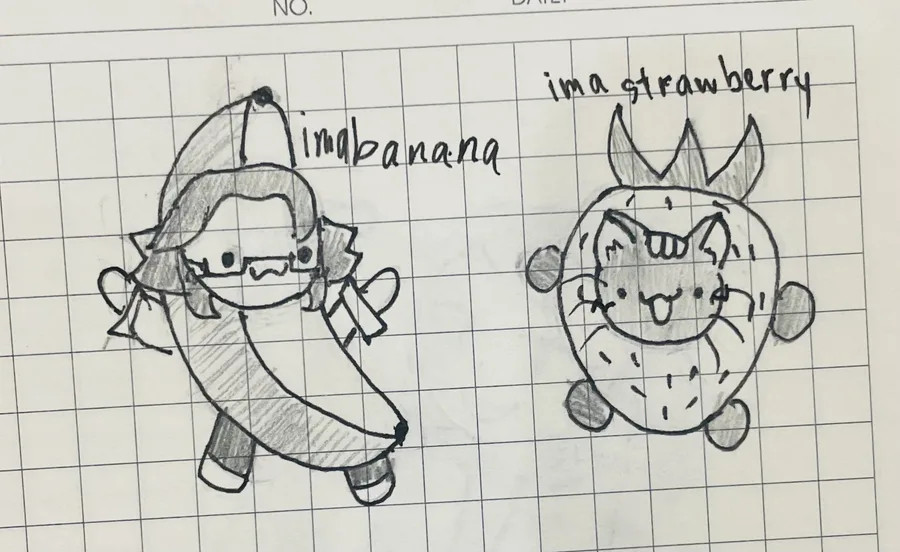 NO.
DATE.
imabanana
ima strawberry